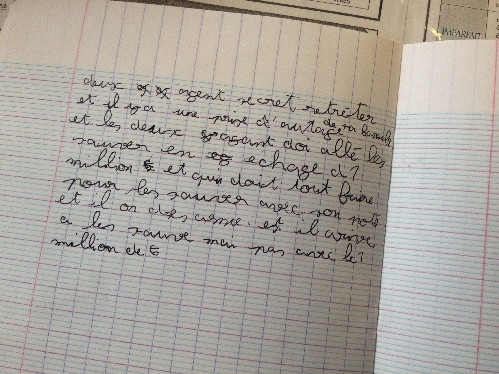 IMPARFAIT
deux agent secret retréter
et il y a une prise d'autage dans la
et les deux agent doi allé les
sauver en echage d'1
million € et qui doit tout faire
pour les sauver avec son pote
et il on des arme. et il arive
a les sauve mai pas avec le 1
million de €